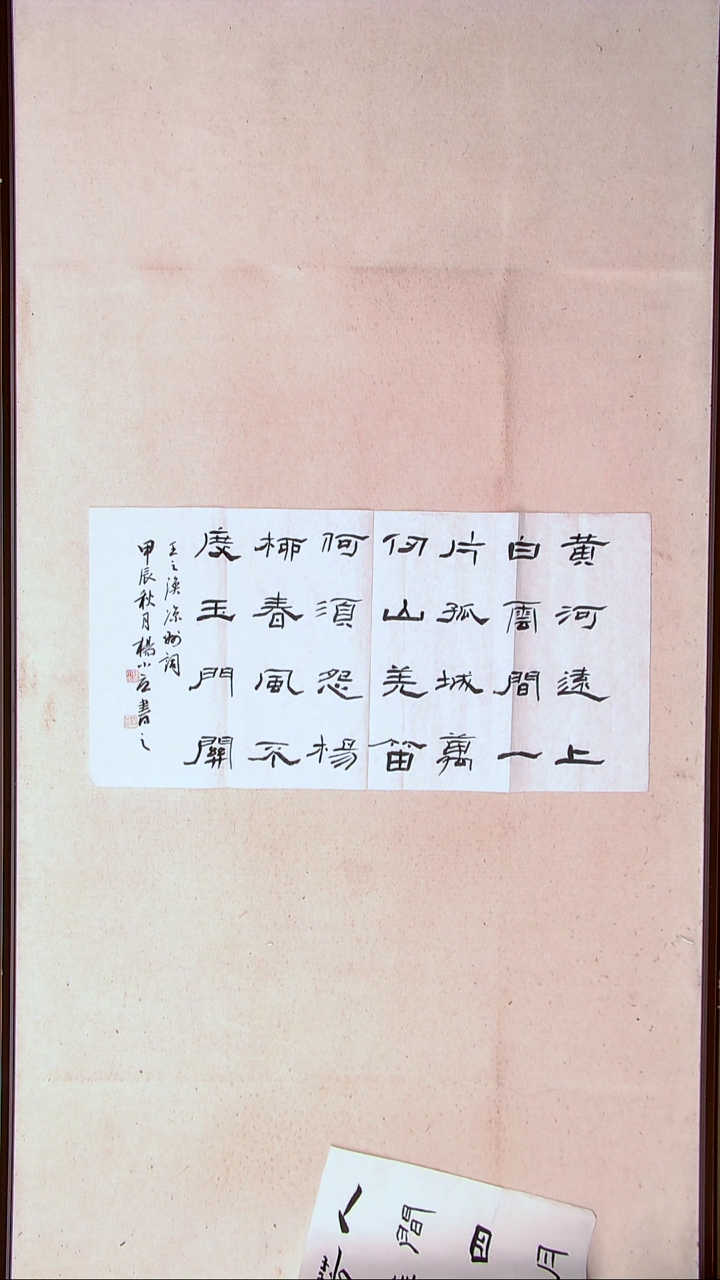 黃河遠上
白雲間一
片孤城萬
仞山羌笛
何須怨楊
柳春風不
度玉門關
王之渙涼州詞
甲辰秋月楊小書之
人間四月